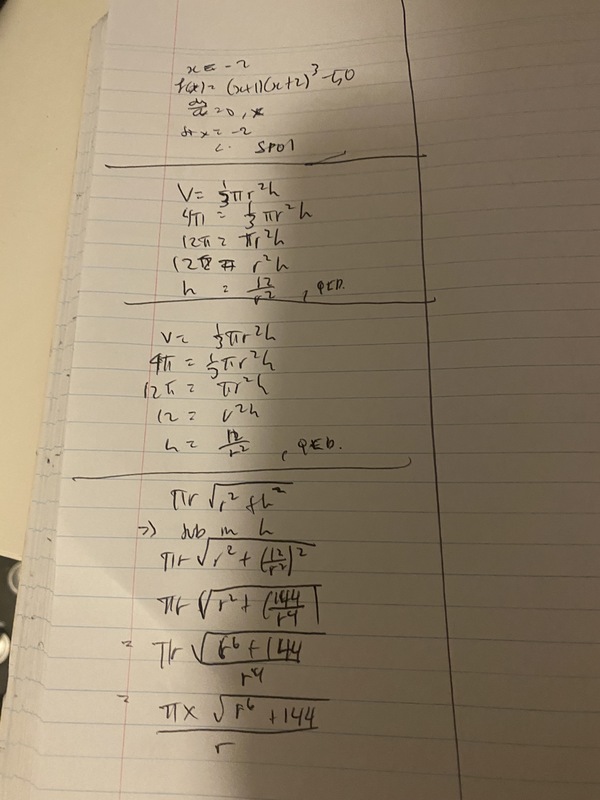 x = -2
f(x) = (x+1)(x+2)³
dy/dx = 0, x
at x = -2
∴ SPOI
V = 1/3 πr²h
4π = 1/3 πr²h
12π = πr²h
12 = r²h
h = 12/r² , QED.
V = 1/3 πr²h
4π = 1/3 πr²h
12π = πr²h
12 = r²h
h = 12/r² , QED.
πr √(r² + h²)
=> sub in h
πr √(r² + (12/r²)²
πr √(r² + (144/r⁴)
= πr √((r⁶ + 144)/r⁴)
= (π × √(r⁶ + 144))/r